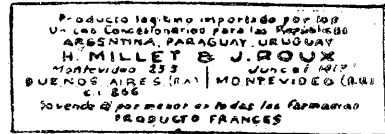 Producto legitimo importado por los
Unicos Concesionarios para las Republicas
ARGENTINA, PARAGUAY, URUGUAY
H. MILLET & J. ROUX
Montevideo 253 Juncal
BUENOS AIRES (RA) MONTEVIDEO (R.O.U)
C.I. 866
Se vende al por menor en todas las Farmacias
PRODUCTO FRANCES